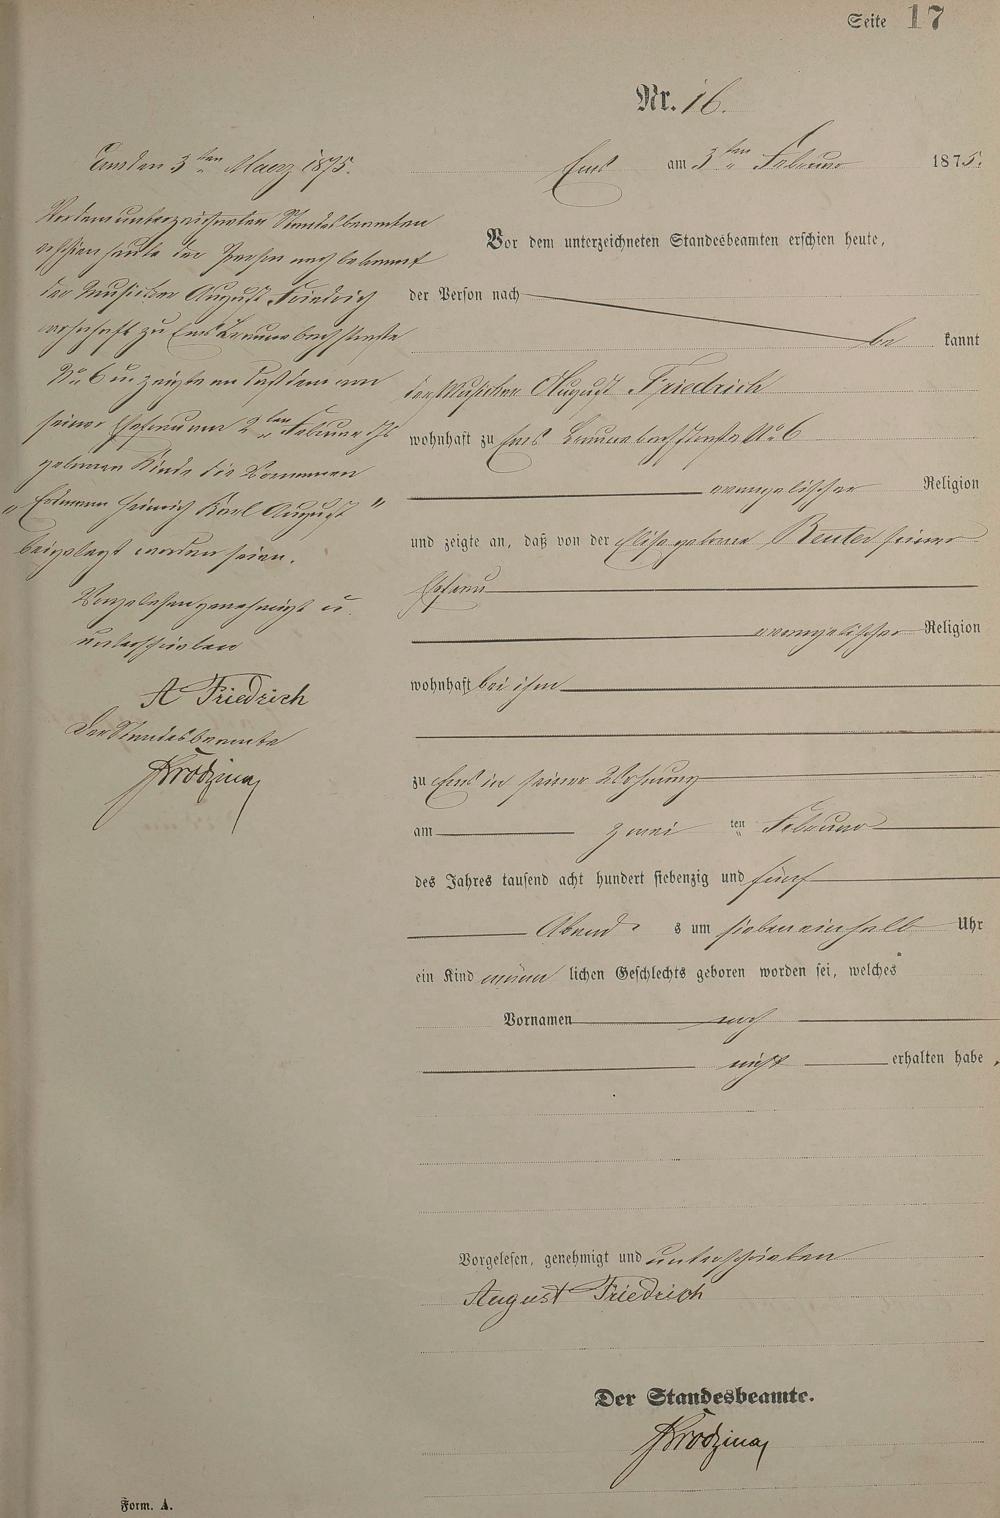 Seite 17
Nr. 16.
Ems am 3ten Februar 1875.
Vor dem unterzeichneten Standesbeamten erschien heute,
der Person nach
be kannt
der Musiker August Friedrich
wohnhaft zu Ems Braunebachstraße No 6
evangelischer Religion
und zeigte an, daß von der Elise geborne Reuter seiner
Ehefrau
evangelischer Religion
wohnhaft bei ihm
zu Ems in seiner Wohnung
am zwei ten Februar
des Jahres tausend acht hundert siebenzig und fünf
Abend s um sieben einhalb Uhr
ein Kind männ lichen Geschlechts geboren worden sei, welches
Vornamen noch
nicht erhalten habe,
Vorgelesen, genehmigt und unterschrieben
August Friedrich
Der Standesbeamte.
Form. A.
Ems den 3ten Maerz 1875.
Vor dem unterzeichneten Standesbeamten
erschien heute der Person nach bekannt
der Musiker August Friedrich
wohnhaft zu Ems Braunebachstraße
No 6 u zeigte an daß dem von
seiner Ehefrau am 2ten Februar d Js
gebornen Kinde die Vornamen
„Erdmann Heinrich Karl August"
beigelegt worden seien.
Vorgelesen genehmigt u.
unterschrieben
A Friedrich
Der Standesbeamte